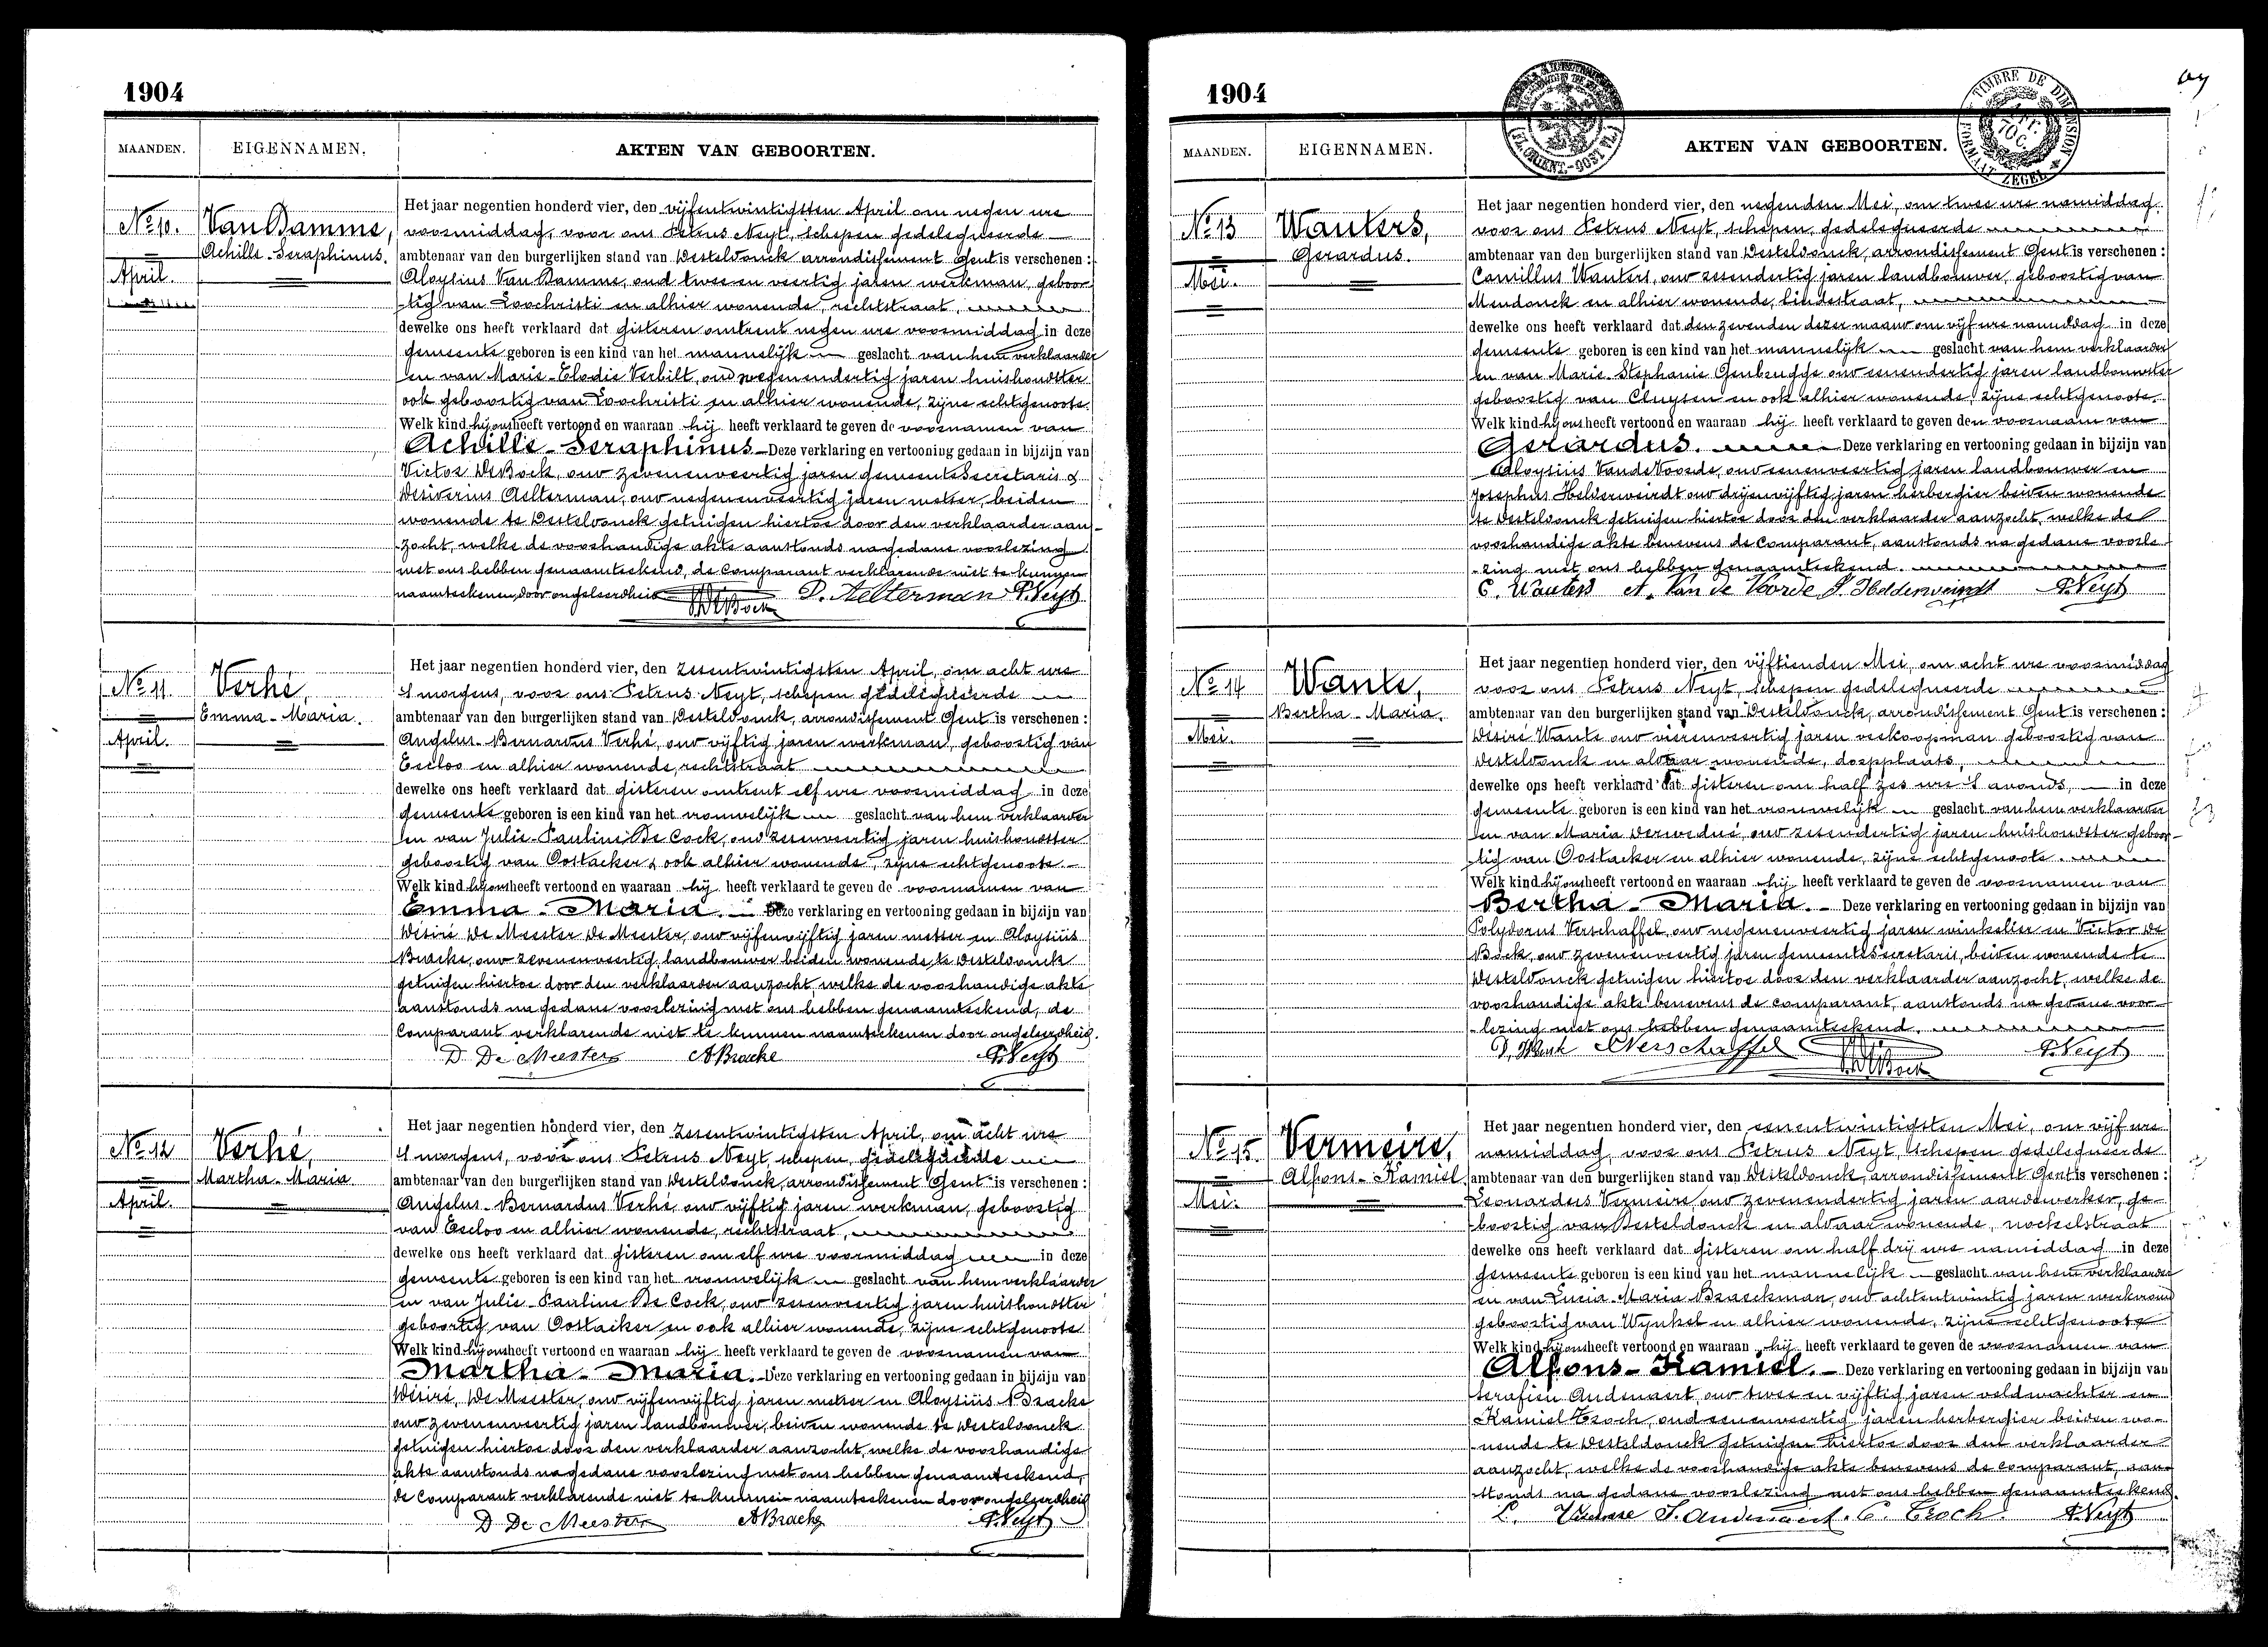 1904
MAANDEN.
EIGENNAMEN.
AKTEN VAN GEBOORTEN.
No 10.
April.
Van Damme,
Achille-Seraphinus.
Het jaar negentien honderd vier, den vijfentwintigsten April om negen ure
voormiddag, voor ons Petrus Neyt, schepen gedelegueerde
ambtenaar van den burgerlijken stand van Desteldonck, arrondissement Gent is verschenen:
Aloysius Van Damme, oud twee en veertig jaren werkman, geboor-
tig van Loochristi en alhier wonende, rechtstraat,
dewelke ons heeft verklaard dat gisteren omtrent negen ure voormiddag in deze
gemeente geboren is een kind van het mannelijk geslacht van hem verklaarder
en van Marie-Elodie Verbilt, oud negenendertig jaren huishoudster
ook geboortig van Loochristi en alhier wonende, zijne echtgenoote.
Welk kind hij ons heeft vertoond en waaraan hij heeft verklaard te geven de voornamen van
Achille-Seraphinus Deze verklaring en vertooning gedaan in bijzijn van
Victor De Bock, oud zevenenveertig jaren gemeentesecretaris &
Desiderius Aelterman, oud negenenveertig jaren metser, beiden
wonende te Desteldonck getuigen hiertoe door den verklaarder aan-
zocht, welke de voorhandige akte aanstonds na gedane voorlezing
met ons hebben genaamteekend, de Comparant verklarende niet te kunnen
naamteekenen door ongeleerdheid
De Bock D. Aelterman P. Neyt
No 11.
April.
Verhé,
Emma-Maria.
Het jaar negentien honderd vier, den zesentwintigsten April, om acht ure
's morgens, voor ons Petrus Neyt, schepen gedelegueerde
ambtenaar van den burgerlijken stand van Desteldonck, arrondissement Gent is verschenen:
Angelus-Bernardus Verhé, oud vijftig jaren werkman, geboortig van
Eecloo en alhier wonende, rechtstraat
dewelke ons heeft verklaard dat gisteren omtrent elf ure voormiddag in deze
gemeente geboren is een kind van het vrouwelijk geslacht van hem verklaarder
en van Julie-Pauline De Cock, oud zesenveertig jaren huishoudster
geboortig van Oostacker & ook alhier wonende, zijne echtgenoote.
Welk kind hij ons heeft vertoond en waaraan hij heeft verklaard te geven de voornamen van
Emma-Maria. Deze verklaring en vertooning gedaan in bijzijn van
Désiré De Meester De Meester, oud vijfenvijftig jaren metser en Aloysius
Bracke, oud zevenenveertig, landbouwer beiden wonende te Desteldonck
getuigen hiertoe door den verklaarder aanzocht, welke de voorhandige akte
aanstonds na gedane voorlezing met ons hebben genaamteekend, de
Comparant verklarende niet te kunnen naamteekenen door ongeleerdheid.
D. De Meester A Bracke P. Neyt
No 12
April.
Verhé,
Martha-Maria.
Het jaar negentien honderd vier, den zesentwintigsten April, om acht ure
's morgens, voor ons Petrus Neyt, schepen, gedelegueerde
ambtenaar van den burgerlijken stand van Desteldonck, arrondissement Gent is verschenen:
Angelus-Bernardus Verhé, oud vijftig jaren werkman, geboortig
van Eecloo en alhier wonende, rechtstraat,
dewelke ons heeft verklaard dat gisteren om elf ure voormiddag in deze
gemeente geboren is een kind van het vrouwelijk geslacht van hem verklaarder
en van Julie-Pauline De Cock, oud zesenveertig jaren huishoudster
geboortig van Oostacker en ook alhier wonende, zijne echtgenoote.
Welk kind hij ons heeft vertoond en waaraan hij heeft verklaard te geven de voornamen van
Martha-Maria. Deze verklaring en vertooning gedaan in bijzijn van
Désiré, De Meester, oud vijfenvijftig jaren metser en Aloysius Bracke
oud zevenenveertig jaren landbouwer, beiden wonende te Desteldonck
getuigen hiertoe door den verklaarder aanzocht, welke de voorhandige
akte aanstonds na gedane voorlezing met ons hebben genaamteekend,
de Comparant verklarende niet te kunnen naamteekenen door ongeleerdheid
D De Meester A Bracke P. Neyt
1904
TIMBRE DE DIMENSION
FORMAAT ZEGEL
MAANDEN.
EIGENNAMEN.
AKTEN VAN GEBOORTEN.
No 13
Mei.
Wauters,
Gerardus.
Het jaar negentien honderd vier, den negenden Mei, om twee ure namiddag.
voor ons Petrus Neyt, schepen, gedelegueerde
ambtenaar van den burgerlijken stand van Desteldonck, arrondissement Gent is verschenen:
Camillus Wauters, oud zesendertig jaren landbouwer, geboortig van
Mendonck en alhier wonende, lindestraat,
dewelke ons heeft verklaard dat den zevenden dezer maand om vijf ure namiddag in deze
gemeente geboren is een kind van het mannelijk geslacht van hem verklaarder
en van Marie-Stephanie Genbrugge oud eenendertig jaren landbouwster
geboortig van Cluysen en ook alhier wonende, zijne echtgenoote.
Welk kind hij ons heeft vertoond en waaraan hij heeft verklaard te geven den voornaam van
Gerardus. Deze verklaring en vertooning gedaan in bijzijn van
Aloysius Vande Voorde, oud eenenveertig jaren landbouwer en
Josephus Helderweirdt oud drijenvijftig jaren herbergier beiden wonende
te Desteldonck getuigen hiertoe door den verklaarder aanzocht, welke de
voorhandige akte benevens de comparant, aanstonds na gedane voorle-
zing met ons hebben genaamteekend.
C. Wauters A. Van de Voorde J. Helderweirdt P. Neyt
No 14
Mei.
Wante,
Bertha-Maria.
Het jaar negentien honderd vier, den vijftienden Mei, om acht ure voormiddag
voor ons Petrus Neyt, schepen gedelegueerde
ambtenaar van den burgerlijken stand van Desteldonck, arrondissement Gent is verschenen:
Désiré Wante oud vierenveertig jaren veekoopman geboortig van
Desteldonck en aldaar wonende, dorpplaats,
dewelke ons heeft verklaard dat gisteren om half zes ure 's avonds, in deze
gemeente geboren is een kind van het vrouwelijk geslacht van hem verklaarder
en van Maria Dervedué, oud zesendertig jaren huishoudster geboor-
tig van Oostacker en alhier wonende, zijne echtgenoote.
Welk kind hij ons heeft vertoond en waaraan hij heeft verklaard te geven de voornamen van
Bertha-Maria. Deze verklaring en vertooning gedaan in bijzijn van
Polydorus Verschaffel, oud negenenveertig jaren winkelier en Victor De
Bock, oud zevenenveertig jaren gemeentesecretaris, beiden wonende te
Desteldonck getuigen hiertoe door den verklaarder aanzocht, welke de
voorhandige akte benevens de comparant, aanstonds na gedane voor-
lezing met ons hebben genaamteekend.
D. Wante Verschaffel De Bock P. Neyt
No 15
Mei.
Vermeire,
Alfons-Kamiel
Het jaar negentien honderd vier, den eenentwintigsten Mei, om vijf ure
namiddag, voor ons Petrus Neyt, schepen gedelegueerde
ambtenaar van den burgerlijken stand van Desteldonck, arrondissement Gent is verschenen:
Leonardus Vermeire, oud zevenendertig jaren aardewerker, ge-
boortig van Desteldonck en aldaar wonende, nockelstraat
dewelke ons heeft verklaard dat gisteren om half drij ure namiddag in deze
gemeente geboren is een kind van het mannelijk geslacht van hem verklaarder
en van Lucia-Maria Braeckman, oud achtentwintig jaren werkvrouw
geboortig van Wynkel en alhier wonende, zijne echtgenoote
Welk kind hij ons heeft vertoond en waaraan hij heeft verklaard te geven de voornamen van
Alfons-Kamiel. Deze verklaring en vertooning gedaan in bijzijn van
Serafien Audenaert, oud twee en vijftig jaren veldwachter en
Kamiel Croch, oud eenenveertig jaren herbergier beiden wo-
nende te Desteldonck getuigen hiertoe door den verklaarder
aanzocht, welke de voorhandige akte benevens de comparant, aan-
stonds na gedane voorlezing met ons hebben genaamteekend.
L. Vermeire S. Audenaert. C. Croch. P. Neyt